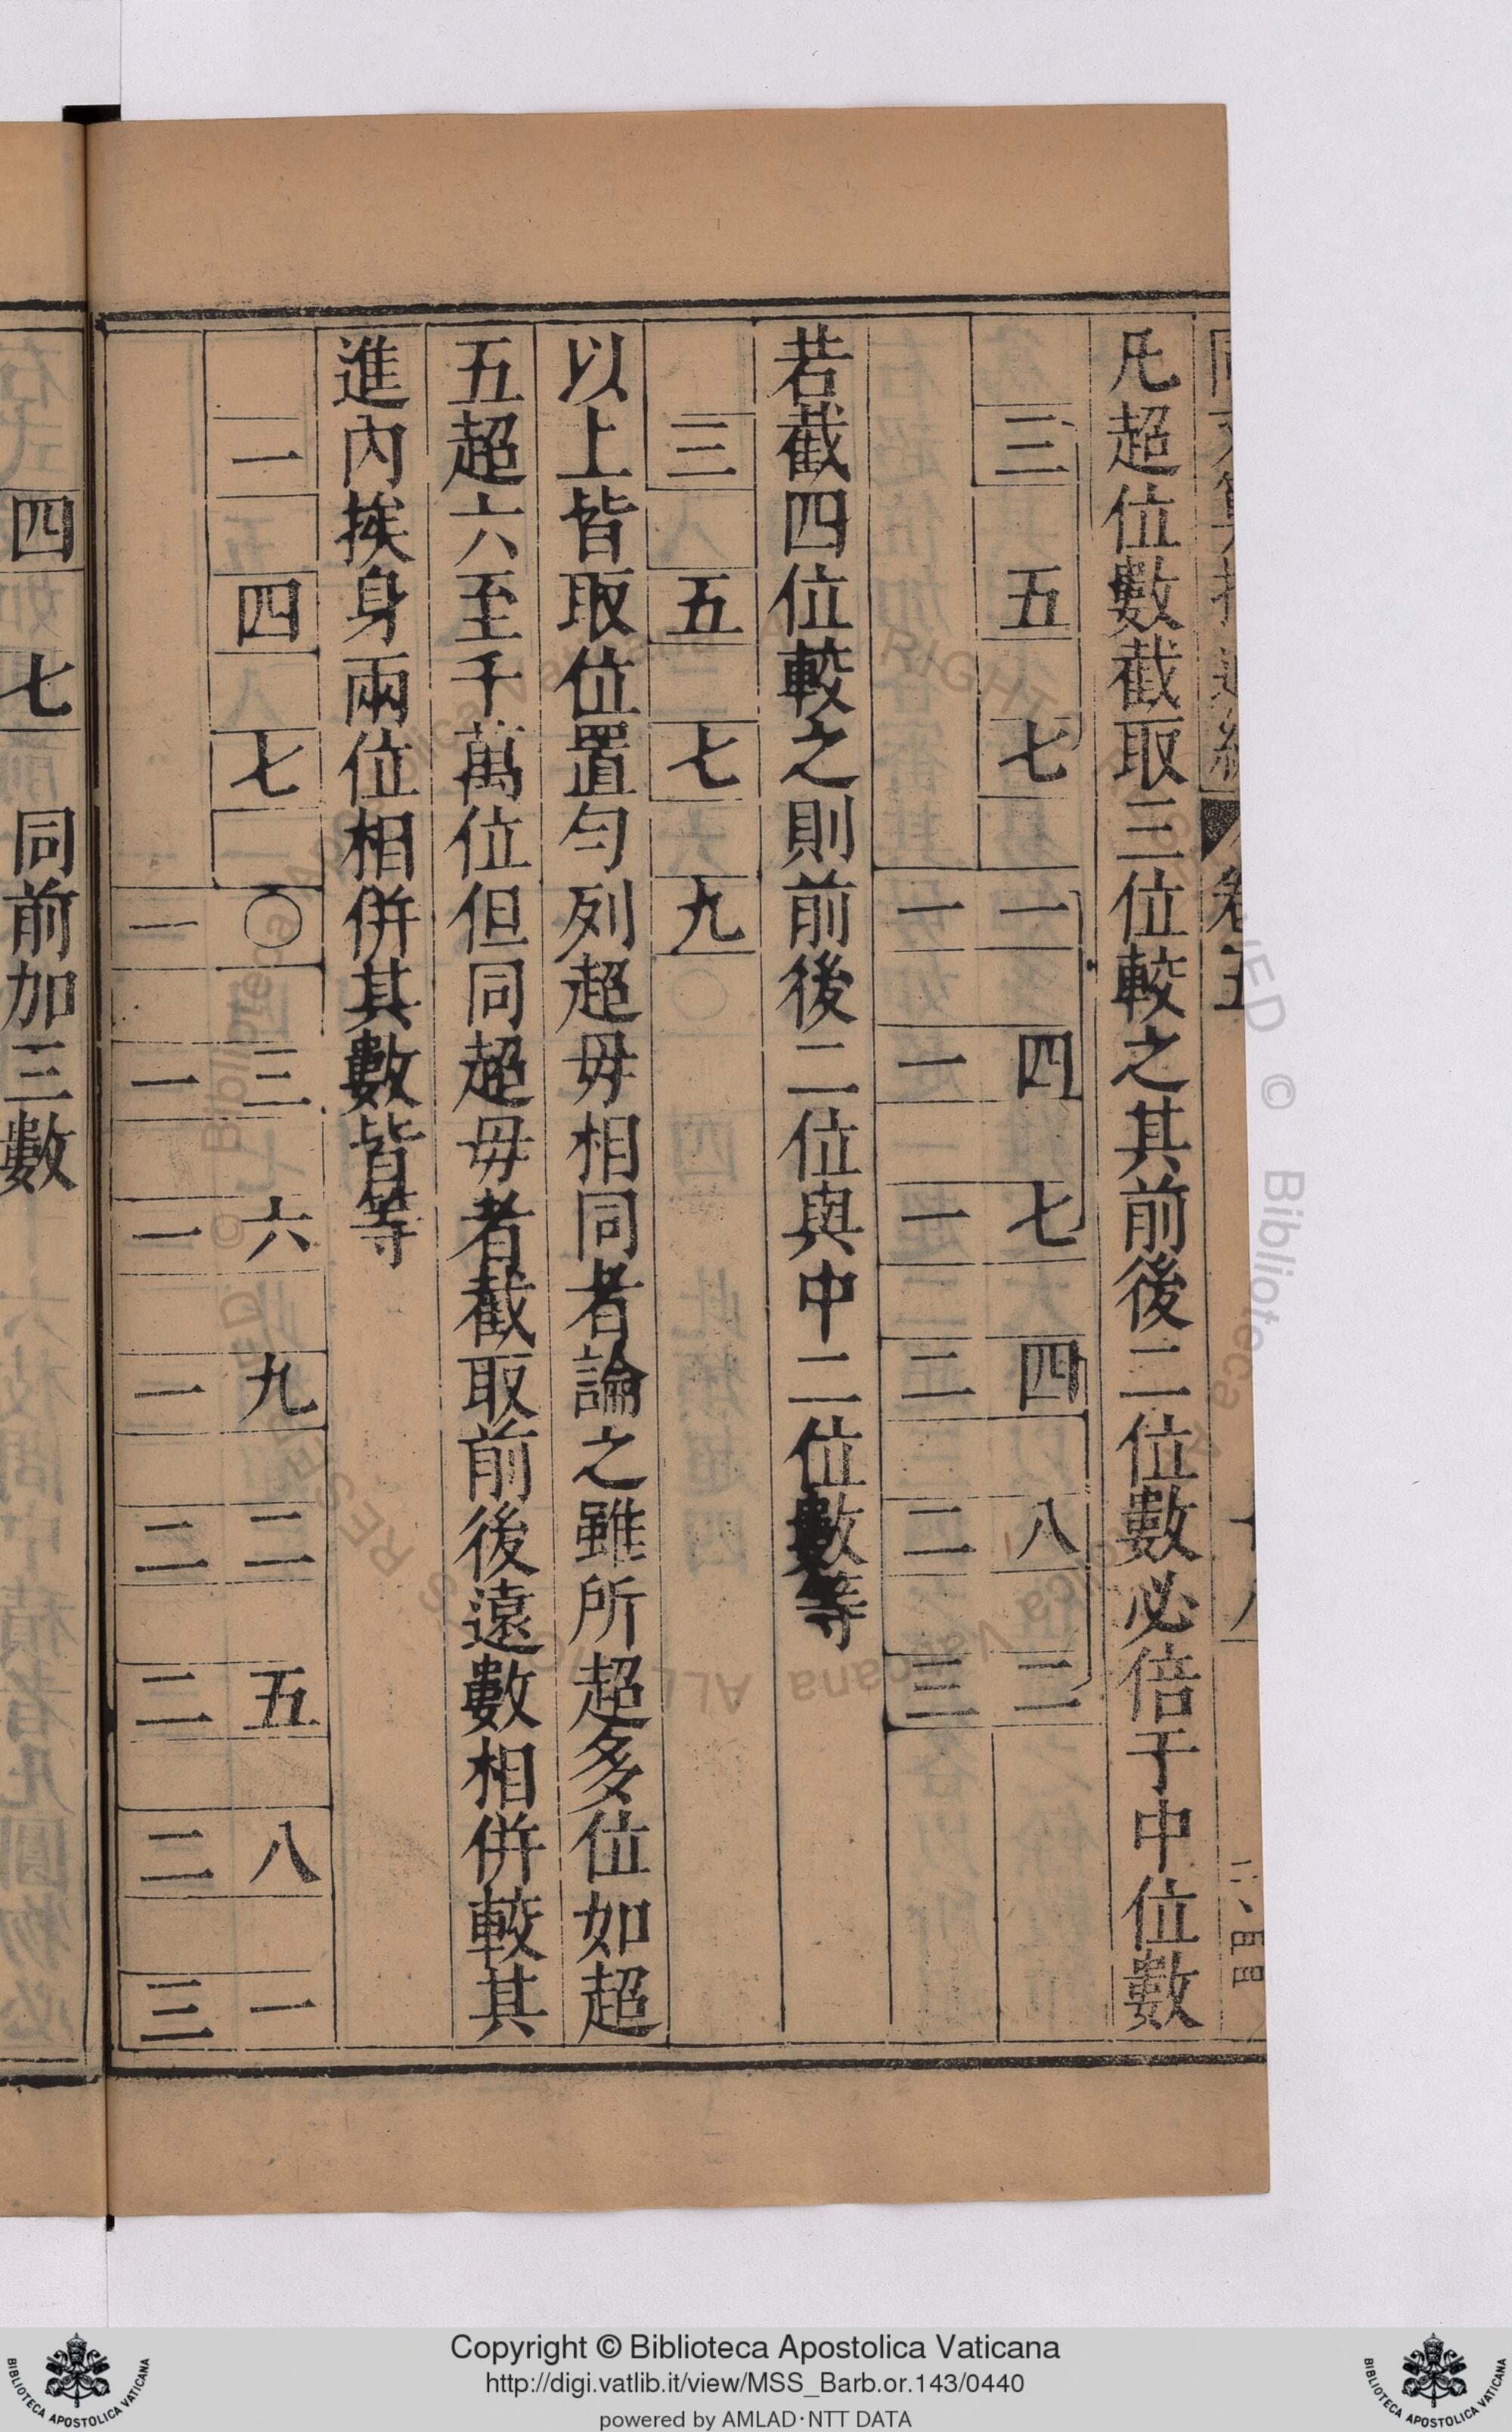 凡超位數截取三位較之其前後二位數必倍于中位數
三 五 七 一 四 七 四 八 二
一 一 一 二 二 三
若截四位較之則前後二位與中二位數等
三 五 七 九
以上皆取位置勻列超毋相同者論之雖所超多位如超
五超六至千萬位但同超毋者截取前後遠數相併較其
進內挨身兩位相併其數皆等
一 四 七 〇 三 六 九 二 五 八 一
一 一 一 一 二 二 二 三
四 七 同前加三數
Copyright © Biblioteca Apostolica Vaticana
http://digi.vatlib.it/view/MSS_Barb.or.143/0440
powered by AMLAD·NTT DATA
BIBLIOTECA APOSTOLICA VATICANA
BIBLIOTECA APOSTOLICA VATICANA